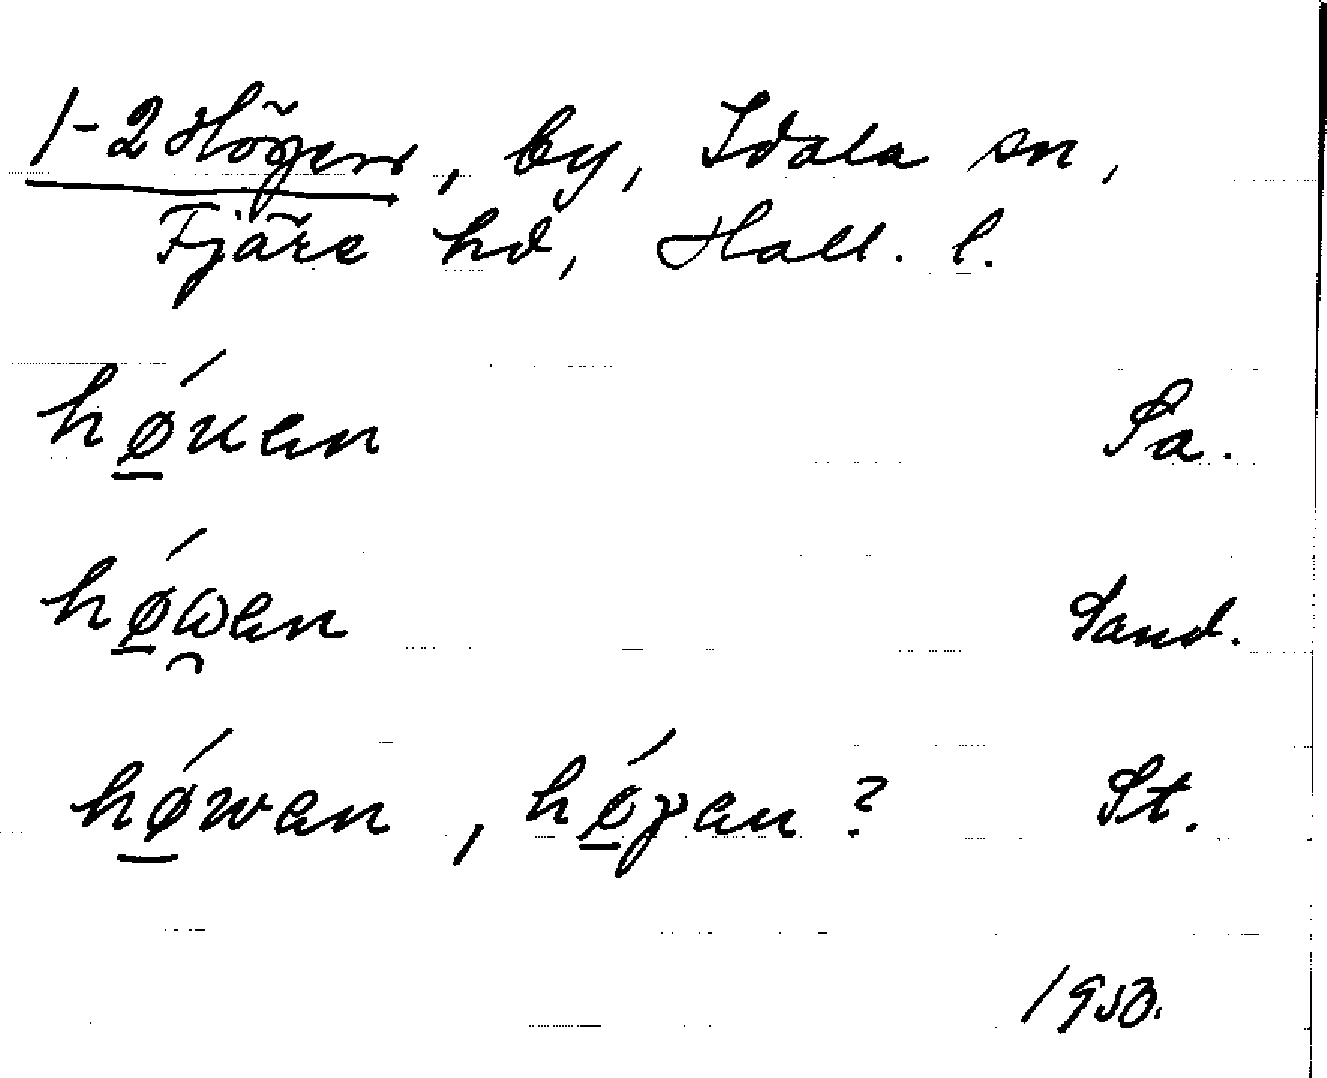 1-2 Högen, by, Idala sn,
Fjäre hd, Hall. l.
hǿ̲uan Sa.
hǿ̲ω̯an Sand.
hǿ̲wan, hǿ̲γan? St.
1953.